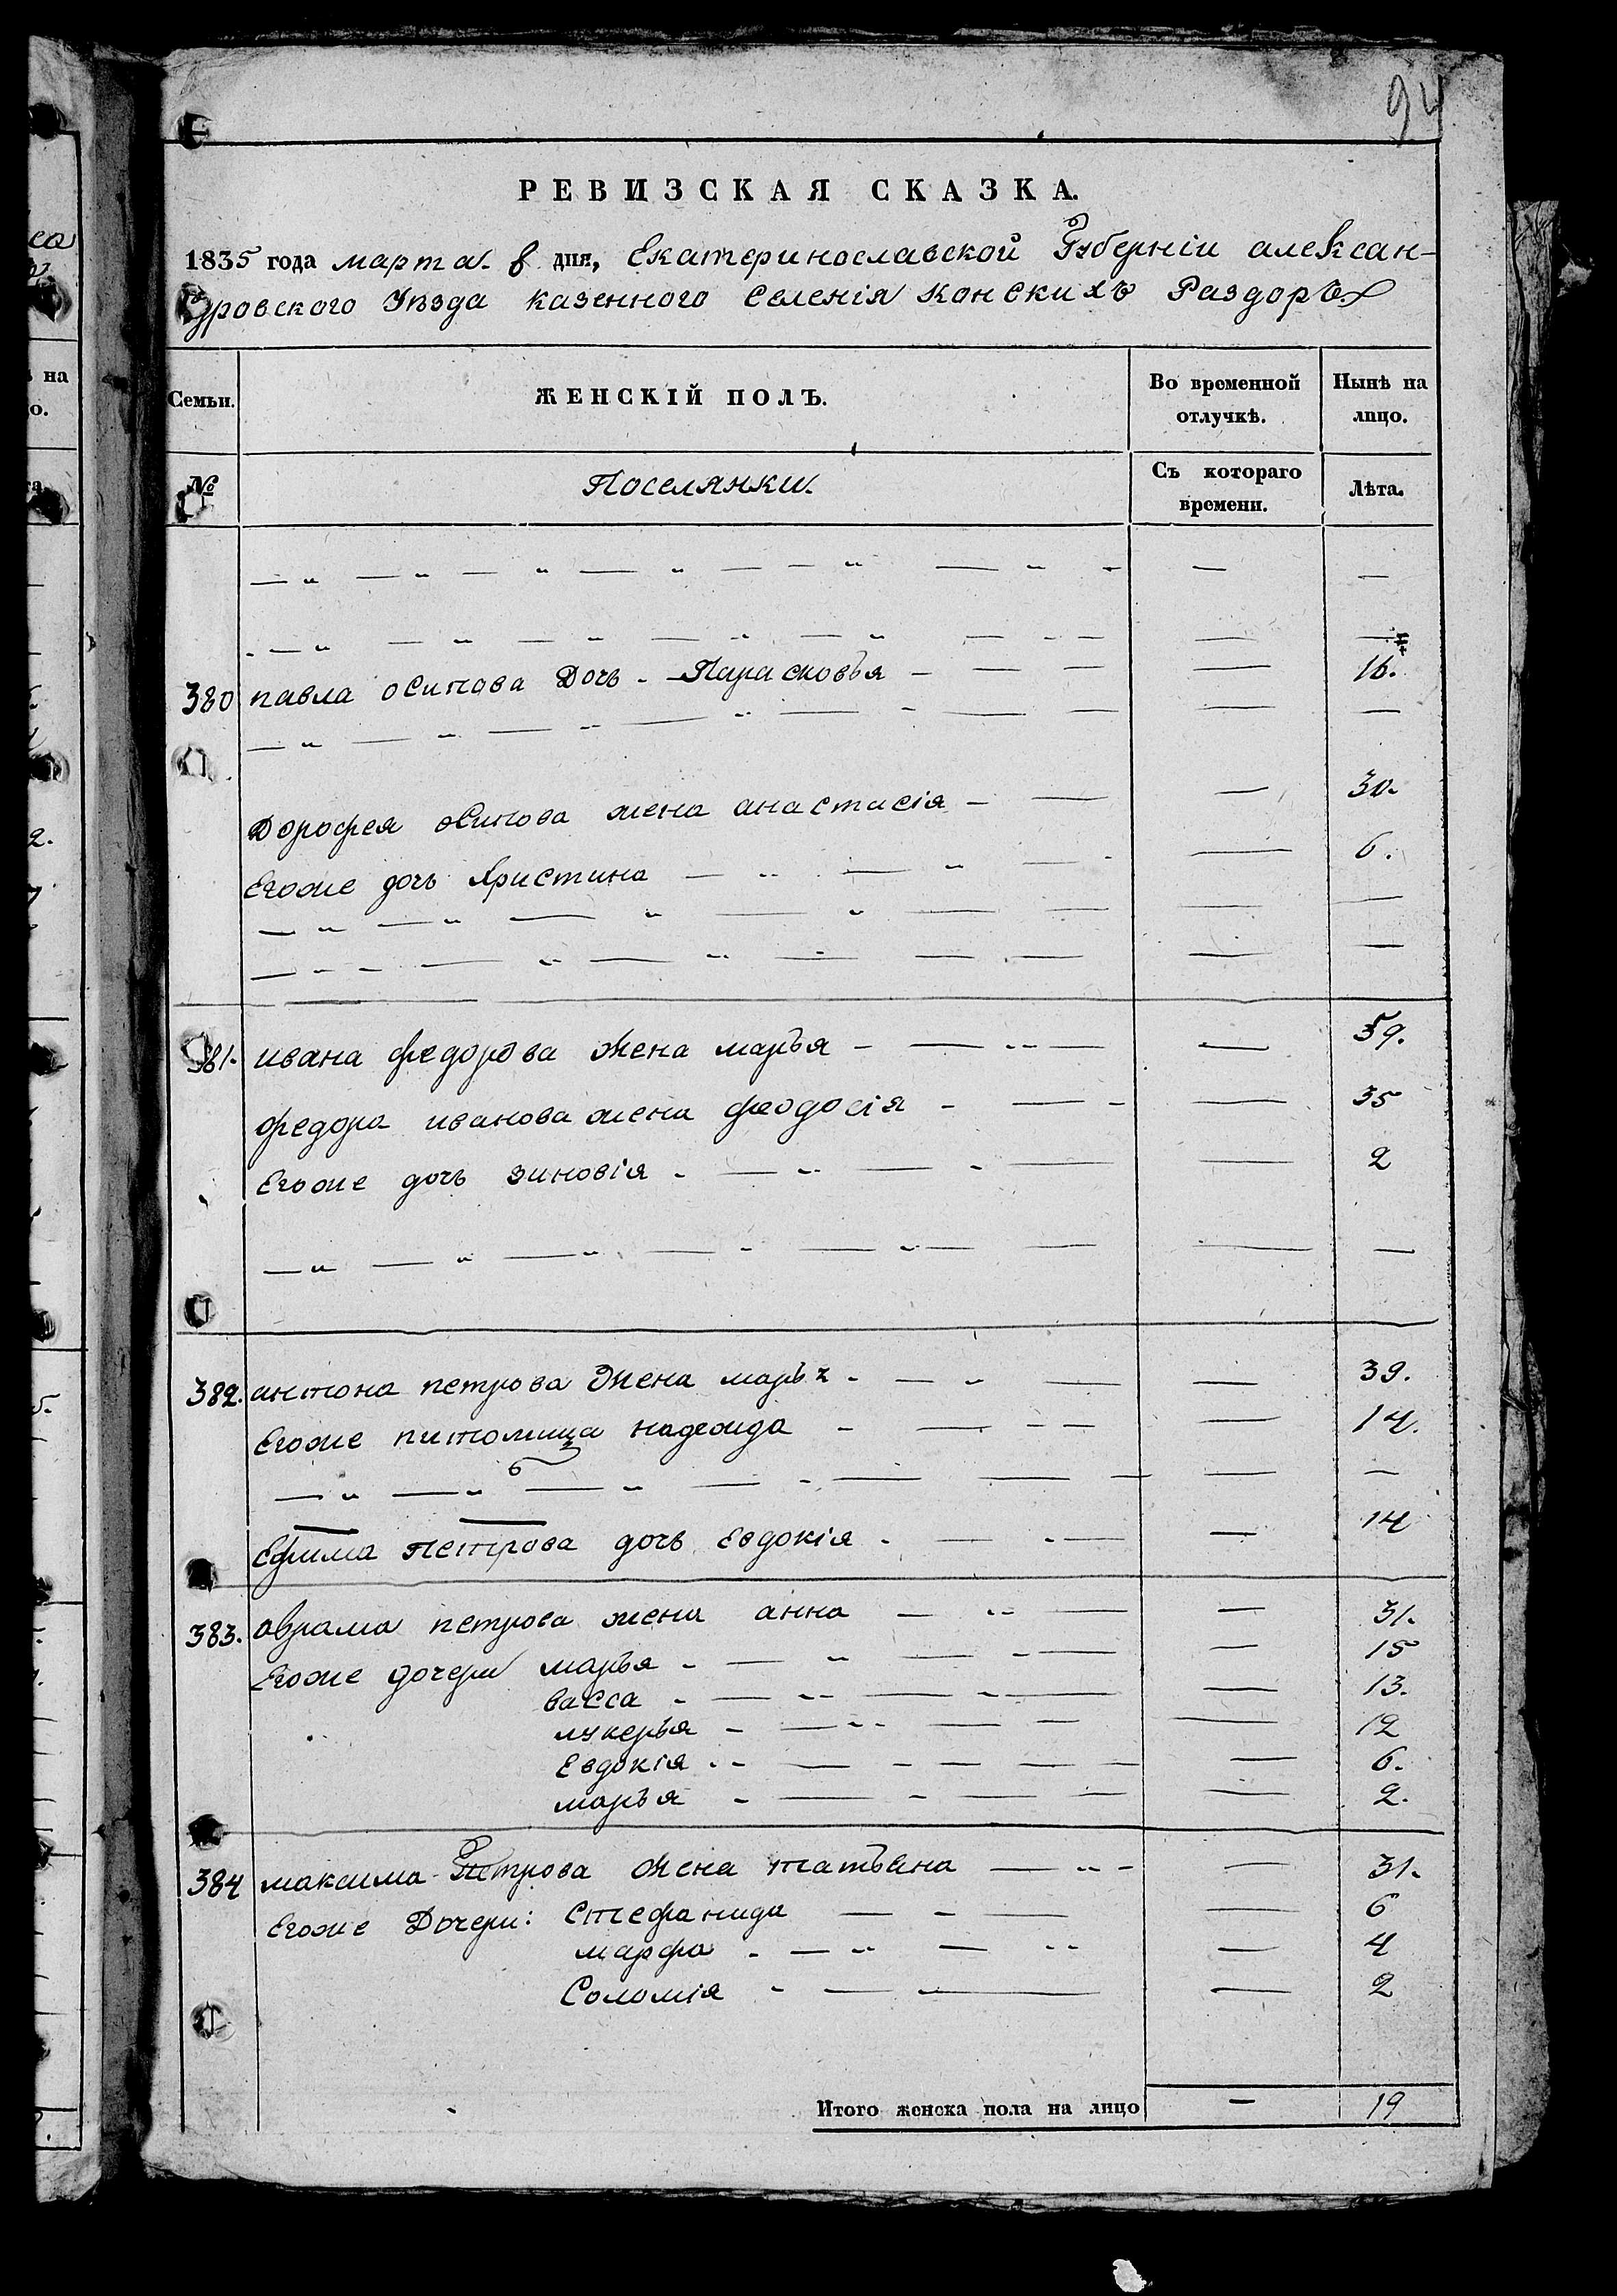 94
РЕВИЗСКАЯ СКАЗКА.
1835 года марта. дня, Екатеринославской Губерніи алексан-
дровского Уѣзда казенного Селенія Конскихъ Раздоръ
Семьи.
ЖЕНСКІЙ ПОЛЪ.
Во временной отлучкѣ.
Нынѣ на лицо.
№
Поселянки.
Съ котораго времени.
Лѣта.
380 павла осипова Дочь - Парасковья - — — — 16.
Дорофея осипова жена анастасія - — — 30.
Егоже дочь Христина — — — 6.
381. ивана федорова жена марья - — — — 59.
федора иванова жена феодосія - — — 35
Егоже дочь зиновія - — — — 2
382. антона петрова жена марья - — — — 39.
Егоже питомица надежда - — — — 14.
Ефима петрова дочь Евдокія - — — — 14
383. аврама петрова жена анна — — — 31.
Егоже дочери марья - — — — 15
васса - — — — 13.
лукерья - — — — 12
Евдокія - — — — 6.
марья - — — — 2.
384 максима Петрова жена татьяна — — 31.
Егоже Дочери: Стефанида — — — 6
марфа - — — — 4
Соломія - — — — 2
Итого женска пола на лицо — 19
на
о.